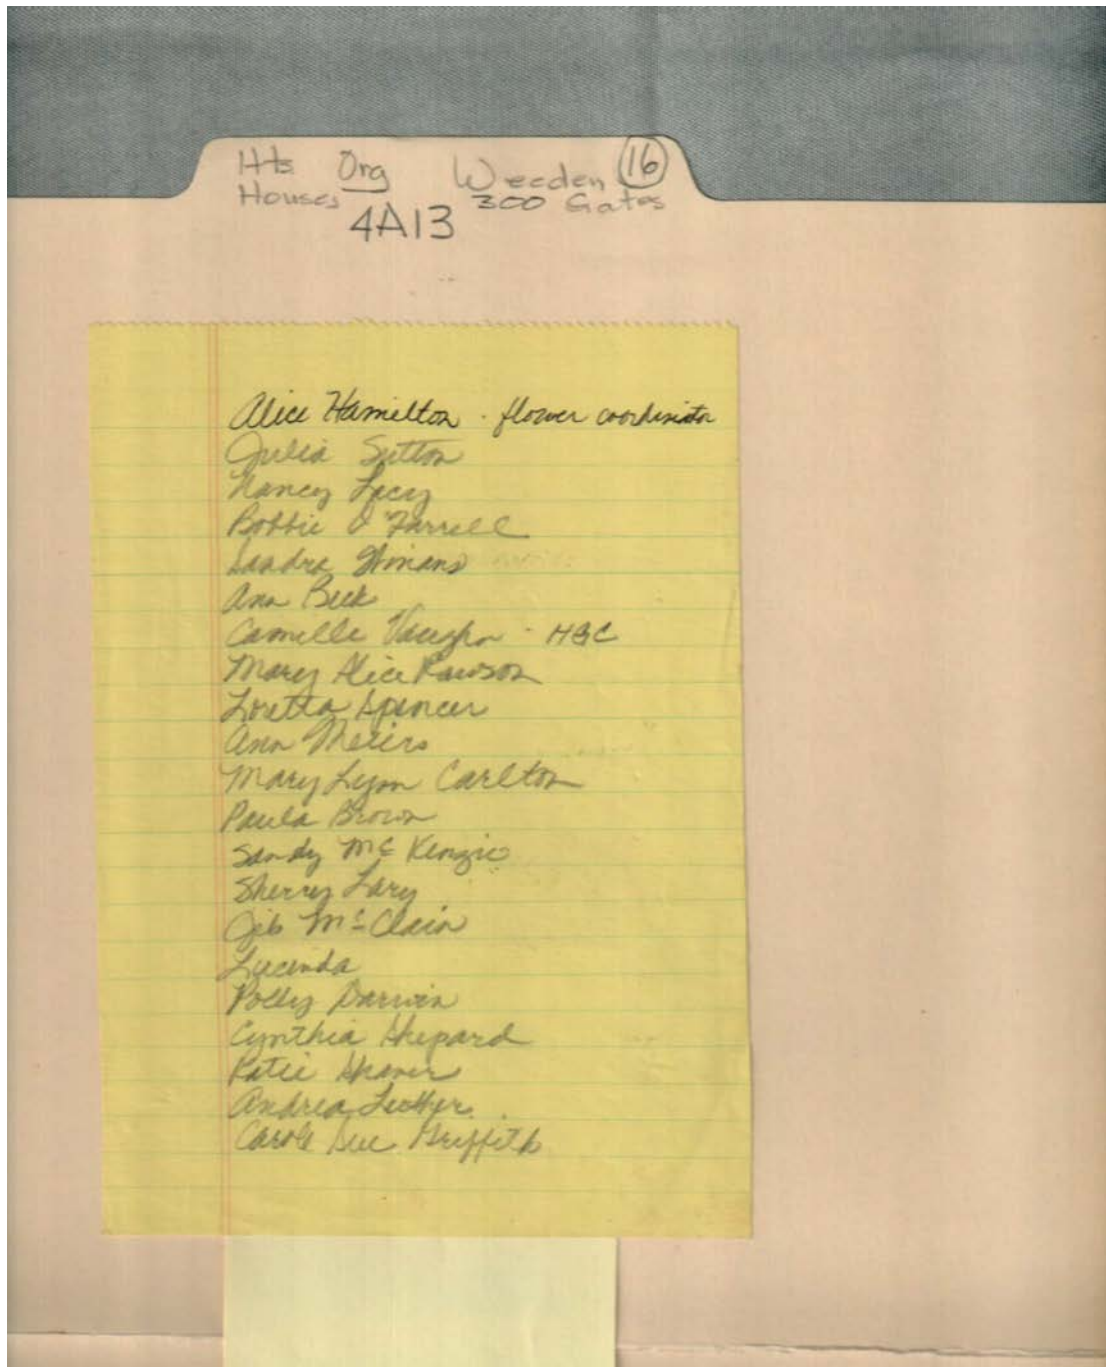 Hts Org Weeden 16
Houses 300 Gates
4A13
Alice Hamilton - flower coordinator
Julia Sutton
Nancy Lacy
Bobbie O'Farrell
Sandra Winans
Ann Beck
Camille Vaughn - HGC
Mary Alice Pawson
Loretta Spencer
Ann
Mary Lynn Carlton
Paula Brown
Sandy McKenzie
Sherry Lary
Jeb McClain
Lucinda
Polly Darwin
Cynthia Shepard
Katie Shaver
Andrea
Carole Sue Griffith